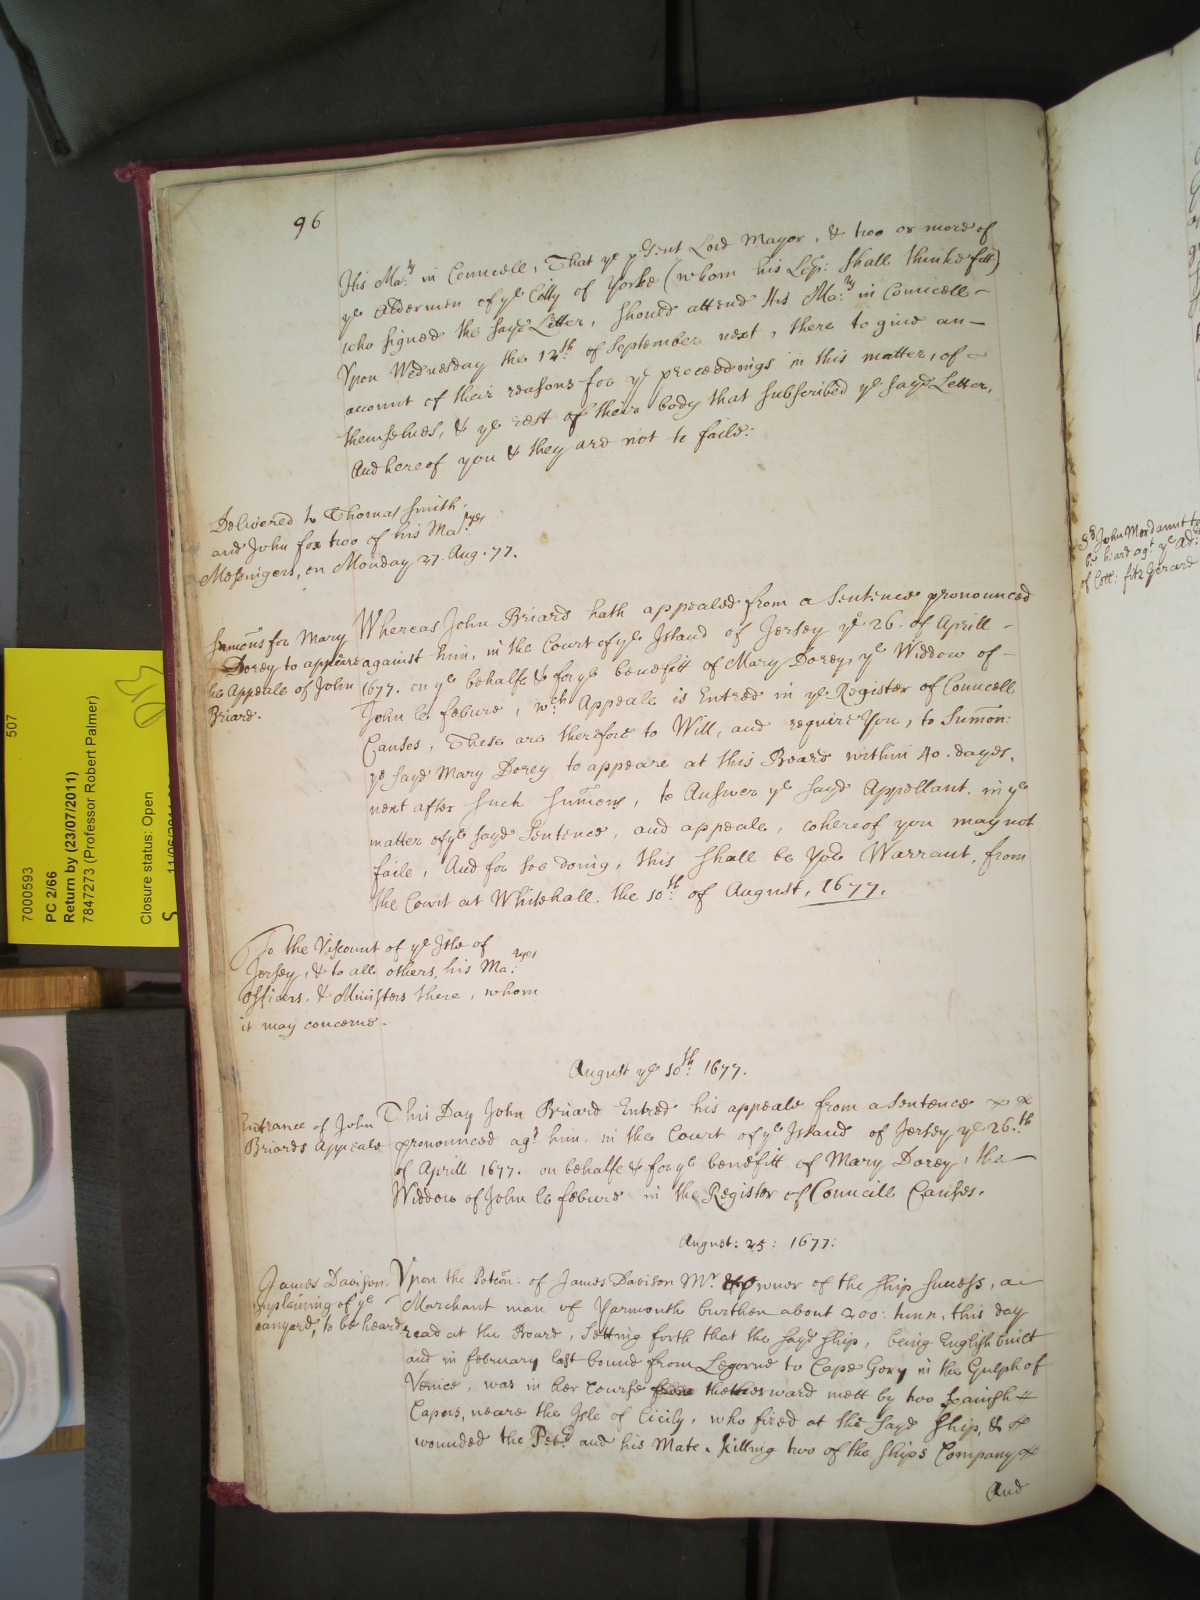 96
His Ma:ty in Councell, That ye psent Lord Mayor, & two or more of
ye Aldermen of ye Citty of Yorke (whom his Lopp: shall thinke fitt)
who signed the sayd Letter, should attend His Ma:ty in Councell
Upon Wednesday the 12th: of September next, there to give an
acount of their reasons for ye proceedings in this matter, of
themselves, & ye rest of their body that subscribed ye sayd Letter,
And hereof you & they are not to faile:
Delivered to Thomas Smith,
and John fox two of his Ma:tyes
Messingers, on Monday 27. Aug. 77.
Sumons for Mary
Dorey to appeare
he Appeale of John
Briard.
Whereas John Briard hath appealed from a Sentence pronounced
against him, in the Court of ye Island of Jersey ye 26. of Aprill
1677. on ye behalfe & for ye benefitt of Mary Dorey, ye Widdow of
John le febure, wch: Appeale is Entred in ye Register of Councell
Causes, These are therefore to Will, and require You, to Sumon:
ye sayd Mary Dorey to appeare at this Board within 40. dayes,
next after such Sumons, to Answer ye sayd Appellant. in ye
matter of ye sayd Sentence, and appeale, whereof you may not
faile, And for soe doing, this shall be yor Warrant, from
the Court at Whitehall. the 10th: of August, 1677.
To the Viscount of ye Isle of
Jersey, & to all others, his Ma:tyes
Officers, & Ministers there, whom
it may concerne.
August ye 10th: 1677.
Entrance of John
Briards Appeale
This Day John Briard Entred his appeale from a Sentence
pronounced agt him, in the Court of ye Island of Jersey ye 26:th
of Aprill 1677. on behalfe & for ye benefitt of Mary Dorey, the
Widdow of John le febure in the Register of Councill Causes.
August: 25: 1677:
James Davison,
mplaining of ye
to be heard
Upon the Peticon: of James Davison Mr & Owner of the ship Success, a
Marchant man of Yarmouth burthen about 200: tunn, this day
read at the Board, Setting forth that the sayd ship, being English built
and in february last bound from Legorne to Cape Gory in the Gulph of
Venice, was in her course thetherward mett by two Spanish
Capers, neare the Isle of Cicily, who fired at the sayd ship, &
wounded the Petr: and his Mate, killing two of the ships Company
And
Sr John Mordaunt to
be heard agt ye Ad:
of Coll: fitz Gerard
507
7000593
PC 2/66
Return by (23/07/2011)
7847273 (Professor Robert Palmer)
Closure status: Open